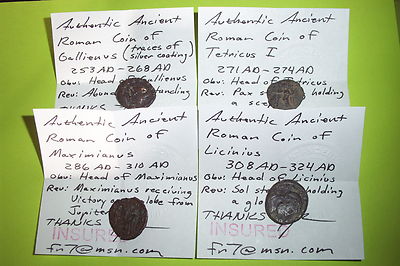 Authentic Ancient
Roman Coin of
Gallienus (traces of
silver coating)
253 AD - 268 AD
Obv: Head of Gallienus
Rev: Abun standing
THANKS
Authentic Ancient
Roman Coin of
Tetricus I
271 AD - 274 AD
Obv: Head of Tetricus
Rev: Pax st holding
a sce
Authentic Ancient
Roman Coin of
Maximianus
286 AD - 310 AD
Obv: Head of Maximianus
Rev: Maximianus receiving
Victory globe from
Jupiter
THANKS
INSURED
fr7@msn.com
Authentic Ancient
Roman Coin of
Licinius
308 AD - 324 AD
Obv: Head of Licinius
Rev: Sol st holding
a glo
THANKS
INSURED
fr7@msn.com